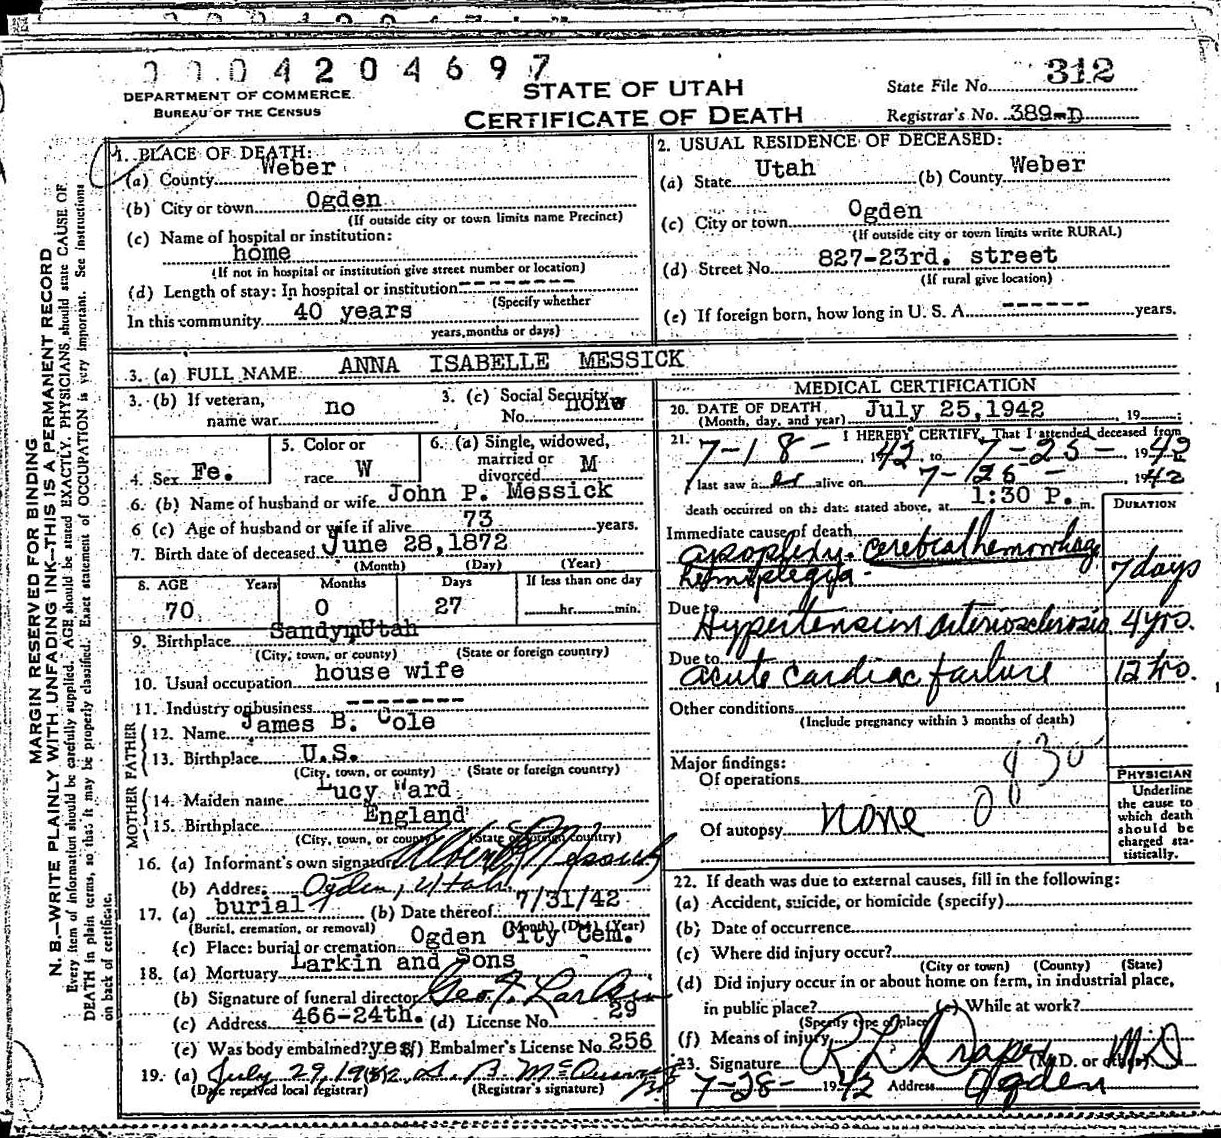 0004204697
DEPARTMENT OF COMMERCE
BUREAU OF THE CENSUS
STATE OF UTAH
CERTIFICATE OF DEATH
State File No. 312
Registrar's No. 389-D
MARGIN RESERVED FOR BINDING
N. B.—WRITE PLAINLY WITH UNFADING INK—THIS IS A PERMANENT RECORD
Every item of information should be carefully supplied. AGE should be stated EXACTLY. PHYSICIANS should state CAUSE OF
DEATH in plain terms, so that it may be properly classified. Exact statement of OCCUPATION is very important. See instructions
on back of certificate.
1. PLACE OF DEATH:
(a) County Weber
(b) City or town Ogden
(If outside city or town limits name Precinct)
(c) Name of hospital or institution:
home
(If not in hospital or institution give street number or location)
(d) Length of stay: In hospital or institution ---------
(Specify whether
In this community 40 years
years, months or days)
2. USUAL RESIDENCE OF DECEASED:
(a) State Utah (b) County Weber
(c) City or town Ogden
(If outside city or town limits write RURAL)
(d) Street No. 827-23rd. street
(If rural give location)
(e) If foreign born, how long in U. S. A. ------- years.
3. (a) FULL NAME ANNA ISABELLE MESSICK
3. (b) If veteran, name war no
3. (c) Social Security No. none
4. Sex Fe.
5. Color or race W
6. (a) Single, widowed, married or divorced M
6. (b) Name of husband or wife John P. Messick
6 (c) Age of husband or wife if alive 73 years.
7. Birth date of deceased June 28,1872
(Month) (Day) (Year)
8. AGE Years Months Days If less than one day
70 0 27 hr. min.
9. Birthplace Sandym Utah
(City, town, or county) (State or foreign country)
10. Usual occupation house wife
11. Industry or business ---------
FATHER
12. Name James B. Cole
13. Birthplace U.S.
(City, town, or county) (State or foreign country)
MOTHER
14. Maiden name Lucy Ward
15. Birthplace England
(City, town, or county) (State or foreign country)
16. (a) Informant's own signature Messick
(b) Address Ogden, Utah
17. (a) burial (b) Date thereof 7/31/42
(Burial, cremation, or removal) (Month) (Day) (Year)
(c) Place: burial or cremation Ogden City Cem.
18. (a) Mortuary Larkin and Sons
(b) Signature of funeral director Geo. T. Larkin
(c) Address 466-24th. (d) License No. 29
(e) Was body embalmed? yes (f) Embalmer's License No. 256
19. (a) July 29, 1942 (b)
(Date received local registrar) (Registrar's signature)
MEDICAL CERTIFICATION
20. DATE OF DEATH July 25,1942 19
(Month, day, and year)
21. I HEREBY CERTIFY, That I attended deceased from
7-18- 1942 to 7-25- 1942
I last saw her alive on 7-25- 1942
death occurred on the date stated above, at 1:30 P. m.
DURATION
Immediate cause of death
apoplexy. cerebral hemorrhage
hemiplegia - 7 days
Due to
Hypertension arteriosclerosis 4 yrs.
Due to
acute cardiac failure 12 hrs.
Other conditions
(Include pregnancy within 3 months of death)
Major findings:
Of operations
Of autopsy none
PHYSICIAN
Underline
the cause to
which death
should be
charged sta-
tistically.
22. If death was due to external causes, fill in the following:
(a) Accident, suicide, or homicide (specify)
(b) Date of occurrence
(c) Where did injury occur?
(City or town) (County) (State)
(d) Did injury occur in or about home on farm, in industrial place,
in public place? (e) While at work?
(Specify type of place)
(f) Means of injury
23. Signature R L Draper M D
(M.D. or other)
7-28- 1942 Address Ogden